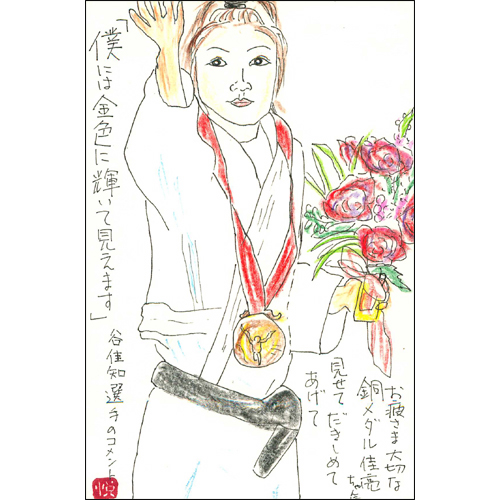 「僕には金色に輝いて見えます」
谷佳知選手のコメント
お疲さま大切な
銅メダル佳亮
ちゃん
見せてだきしめて
あげて